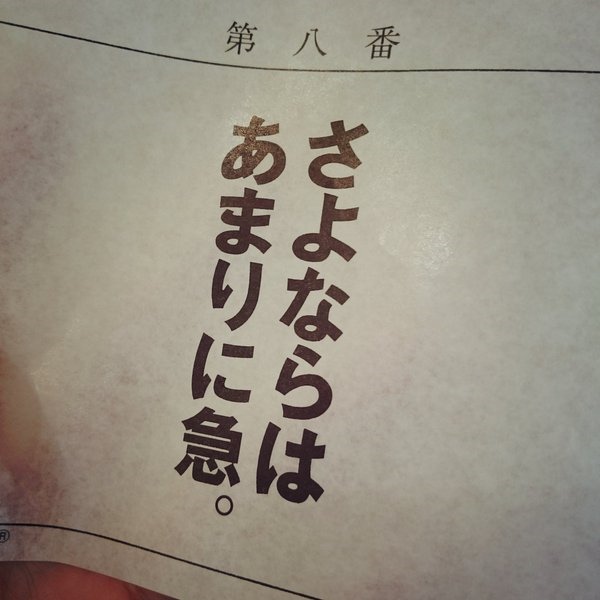 第八番
さよならは
あまりに急。
®